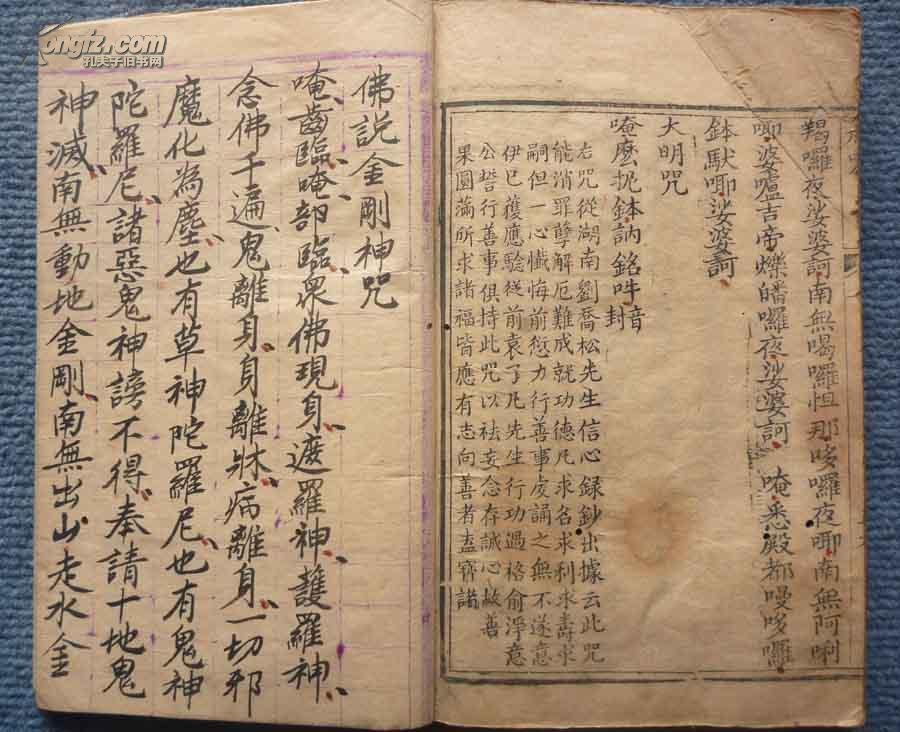 羯囉夜娑婆訶南無喝囉怛那哆囉夜唧南無阿唎
唧婆嚧吉帝爍皤囉夜娑婆訶 唵悉殿都曼哆囉
鉢馱唧娑婆訶
大明咒
唵麼抳鉢訥銘吽音封
右咒從湖南劉喬松先生信心録鈔出據云此咒
能消罪孽解厄難成就功德凡求名求利求壽求
嗣但一心懺悔前愆力行善事虔誦之無不遂意
伊已獲應驗從前袁了凡先生行功過格俞淨意
公誓行善事俱持此咒以祛妄念存誠心故善
果圓滿所求諸福皆應有志向善者盍齊諸
佛説金剛神咒
唵齒臨唵部臨衆佛現身遮羅神護羅神
念佛千遍鬼離身身離牀病離身一切邪
魔化為塵也有草神陀羅尼也有鬼神
陀羅尼諸惡鬼神謗不得奉請十地鬼
神滅南無動地金剛南無出山走水金
孔夫子旧书网